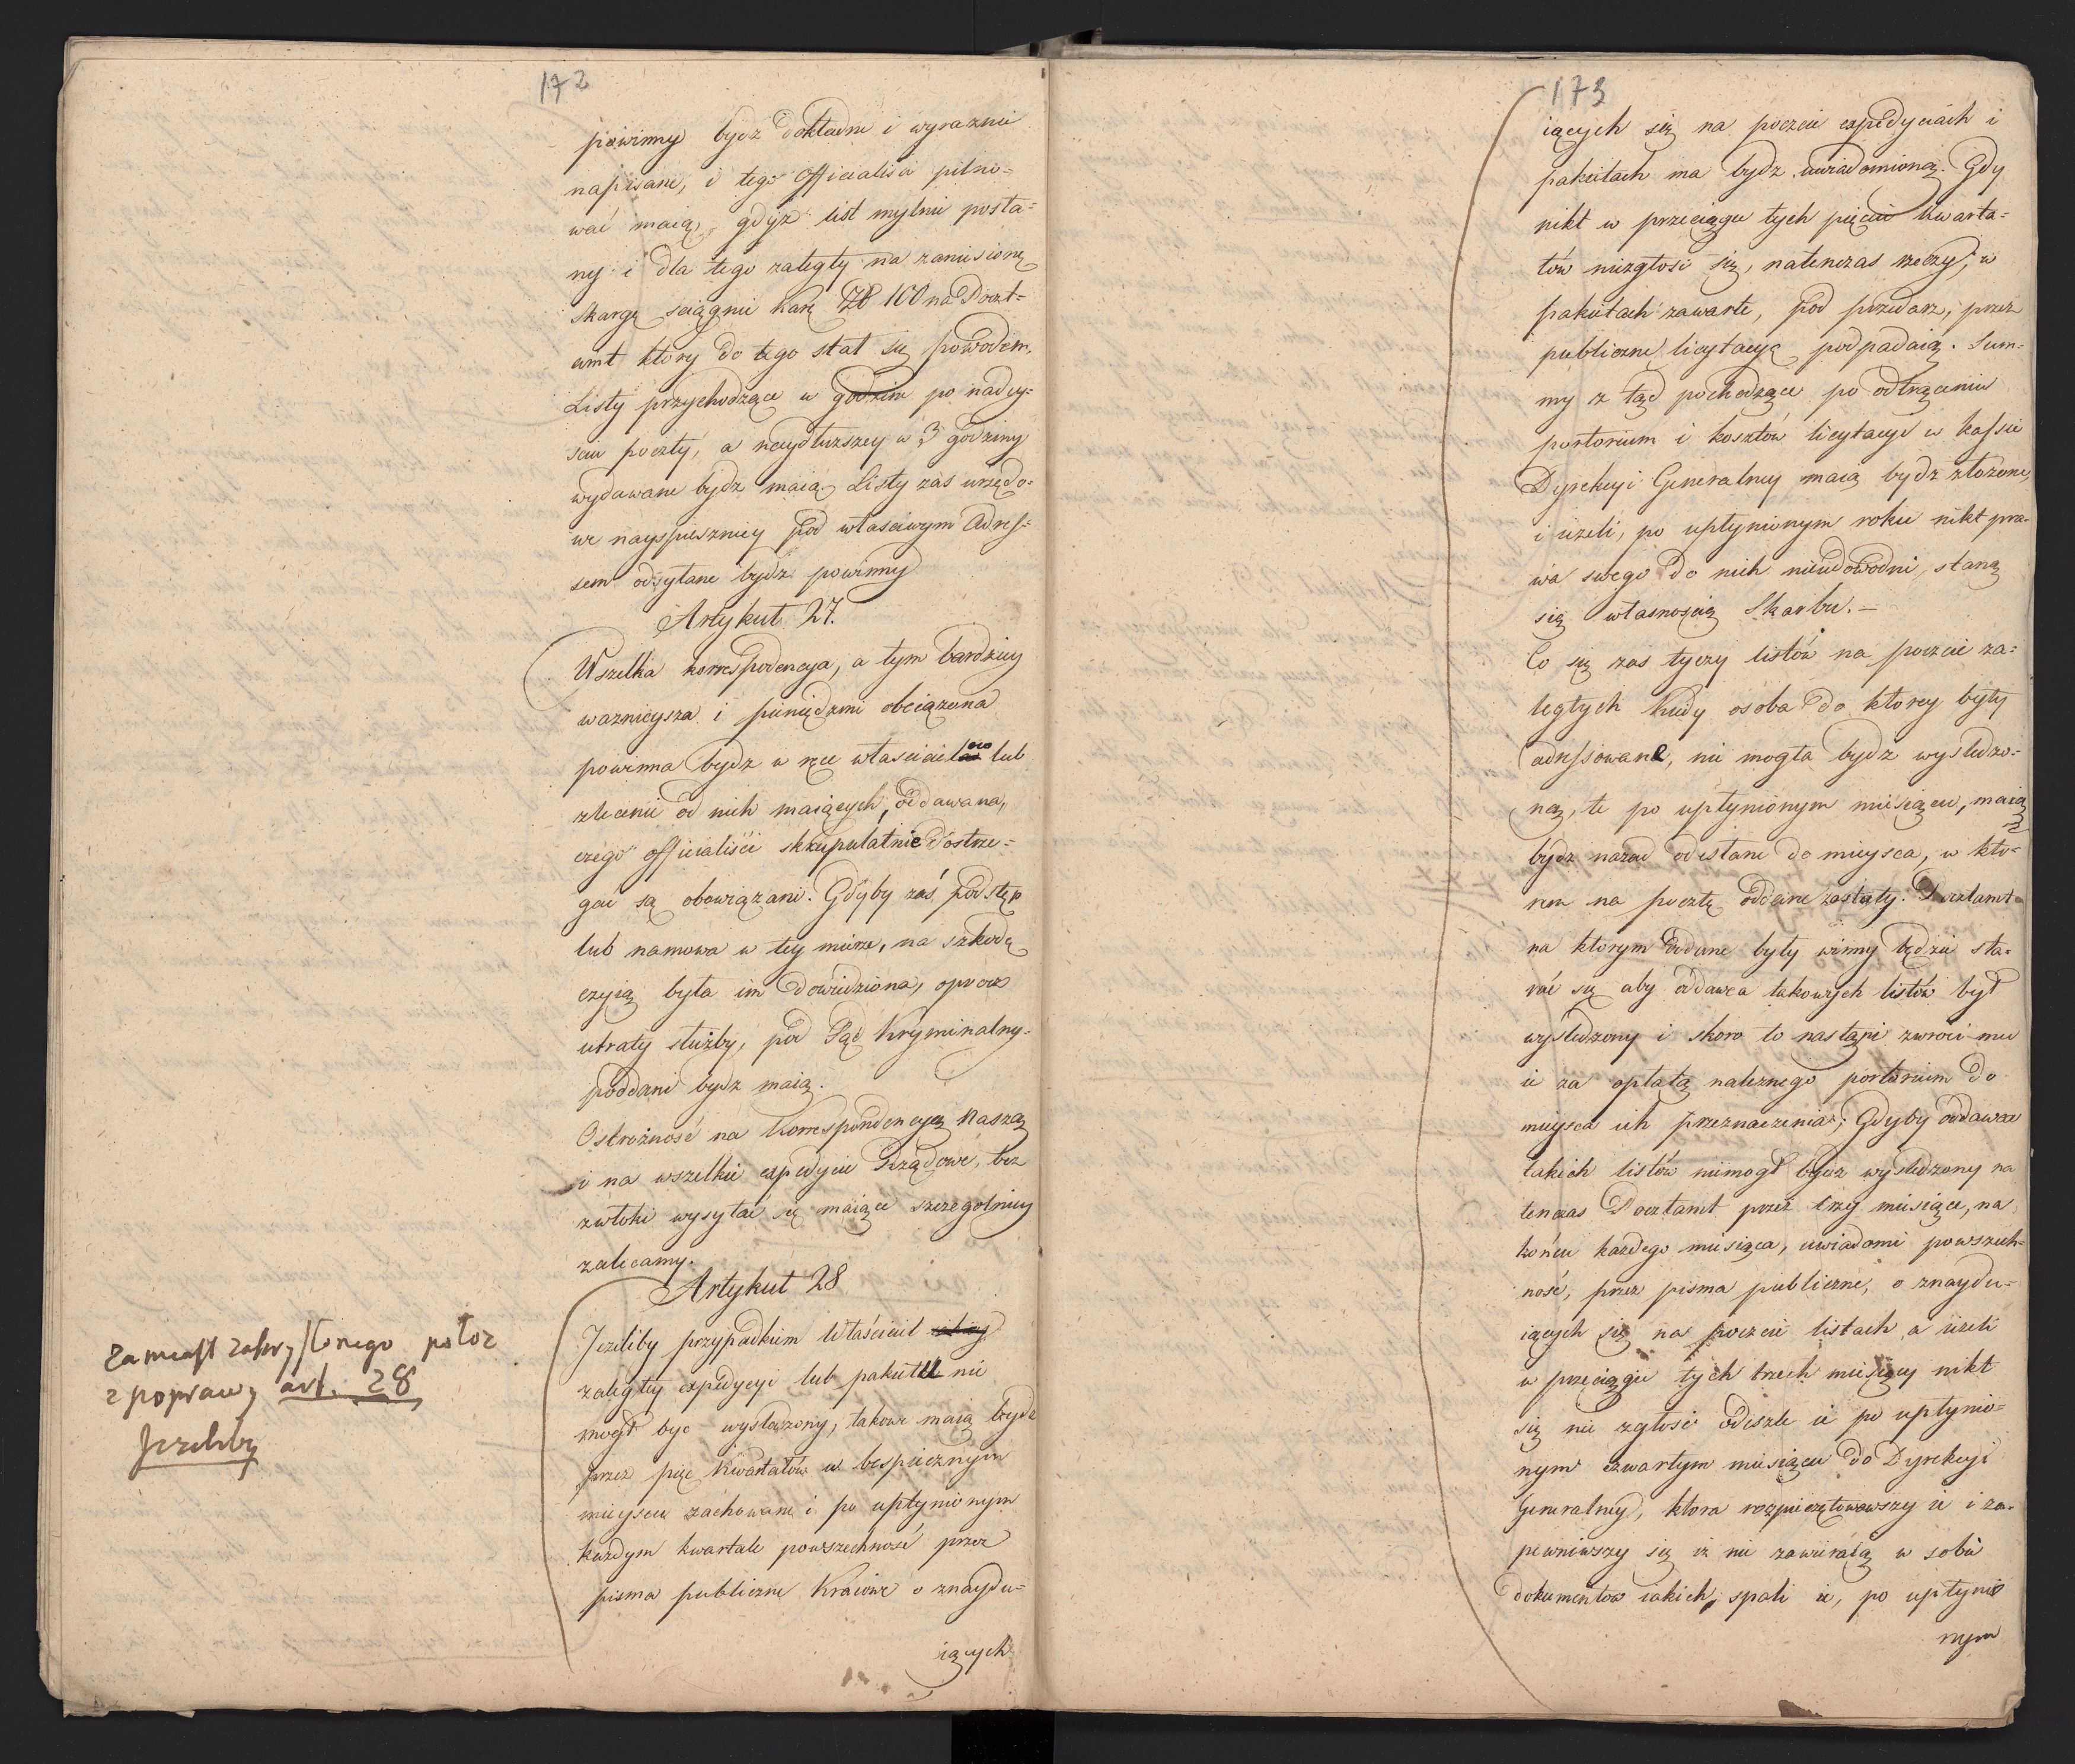 172
powinny bydz dokładnie i wyraznie
napisane, i tego officialisci pilno=
wać maią, gdyż list mylnie posła=
ny i dla tego zaległy na zaniesioną
skargę sciągnie karę Zł 100 na Poczt=
amt ktory do tego stał się powodem,
Listy przychodzące w godzinę po nadey=
sciu poczty, a naydłuzszey w 3 godziny
wydawane bydz maią. Listy zas urzędo=
we nayspieszniey pod własciwym Adres=
sem odsyłane bydz powinny
Artykuł 27.
Wszelka korrespodencya, a tym bardziey
waznieysza i pieniędzmi obciązona
powinna bydz w ręce włascicielow lub
zlecenie od nich maiących, oddawana,
czego officialiści skrupulatnie dostrze=
gać są obowiązani. Gdyby zaś podstęp
lub namowa w tey mierze, na szkodę
czyią była im dowiedziona, oprocz
utraty służby, pod Sąd Kryminalny
poddani bydz maią.
Ostrożność na Korrespondencyą Naszą
i na wszelkie expedycie Rządowe, bez
zwłoki wysyłać się maiące szczegolniey
zalecamy.
Artykuł 28
Jezeliby przypadkiem Właściciel
zaległey expedycyi lub pakietu nie
mogł byc wysledzony, takowe maią bydz
przez pięc kwartałów w bespiecznym
mieyscu zachowane i po upłynionym
każdym kwartale powszechność przez
pisma publiczne Kraiowe o znaydu=
iących
zamiast zakryslonego połoz
z poprawy art. 28
Jezeliby
173
iących się na poczcie expedyciach i
pakietach ma bydz uwiadomioną. Gdy
nikt w przeciągu tych pięciu kwarta=
łów niezgłosi się, natenczas rzeczy, w
pakietach zawarte, pod przedarz, przez
publiczne licytacyą podpadaią. Sum=
my z tąd pochodzące po odtrąceniu
portorium i kosztów licytacyi w kassie
Dyrekcyi Generalney maią bydz złożone,
i ieżeli, po upłynionym roku nikt pra=
wa swego do nich nieudowodni, staną
się własnością Skarbu. —
Co się zas tyczy listów na poczcie za=
ległych kiedy osoba do ktorey były
adressowane, nie mogła bydz wysledzo=
ną, te po upłynionym miesiącu, maią
bydz nazad odesłane do mieysca, w kto=
rem na pocztę oddane zostały. Pocztamt
na ktorym oddane były winny będzie sta=
rać się aby oddawca takowych listów był
wysledzony i skoro to nastąpi zwroci mu
ie za opłatą należnego portorium do
mieysca ich przeznaczenia; Gdyby oddawca
takich listów niemogł bydz wysledzony na
tenczas Pocztamt przez trzy miesiące, na
końcu każdego miesiąca, uwiadomi powszech=
ność, przez pisma publiczne, o znaydu=
iących się na poczcie listach a ieżeli
w przeciągu tych trzech miesięcy nikt
się nie zgłosi odeszle ie po upłynio=
nym czwartym miesiącu do Dyrekcyi
Generalney, ktora rozpieczętowawszy ie i za=
pewniwszy się iz nie zawieraią w sobie
dokumentow iakich, spali ie, po upłynio
nym